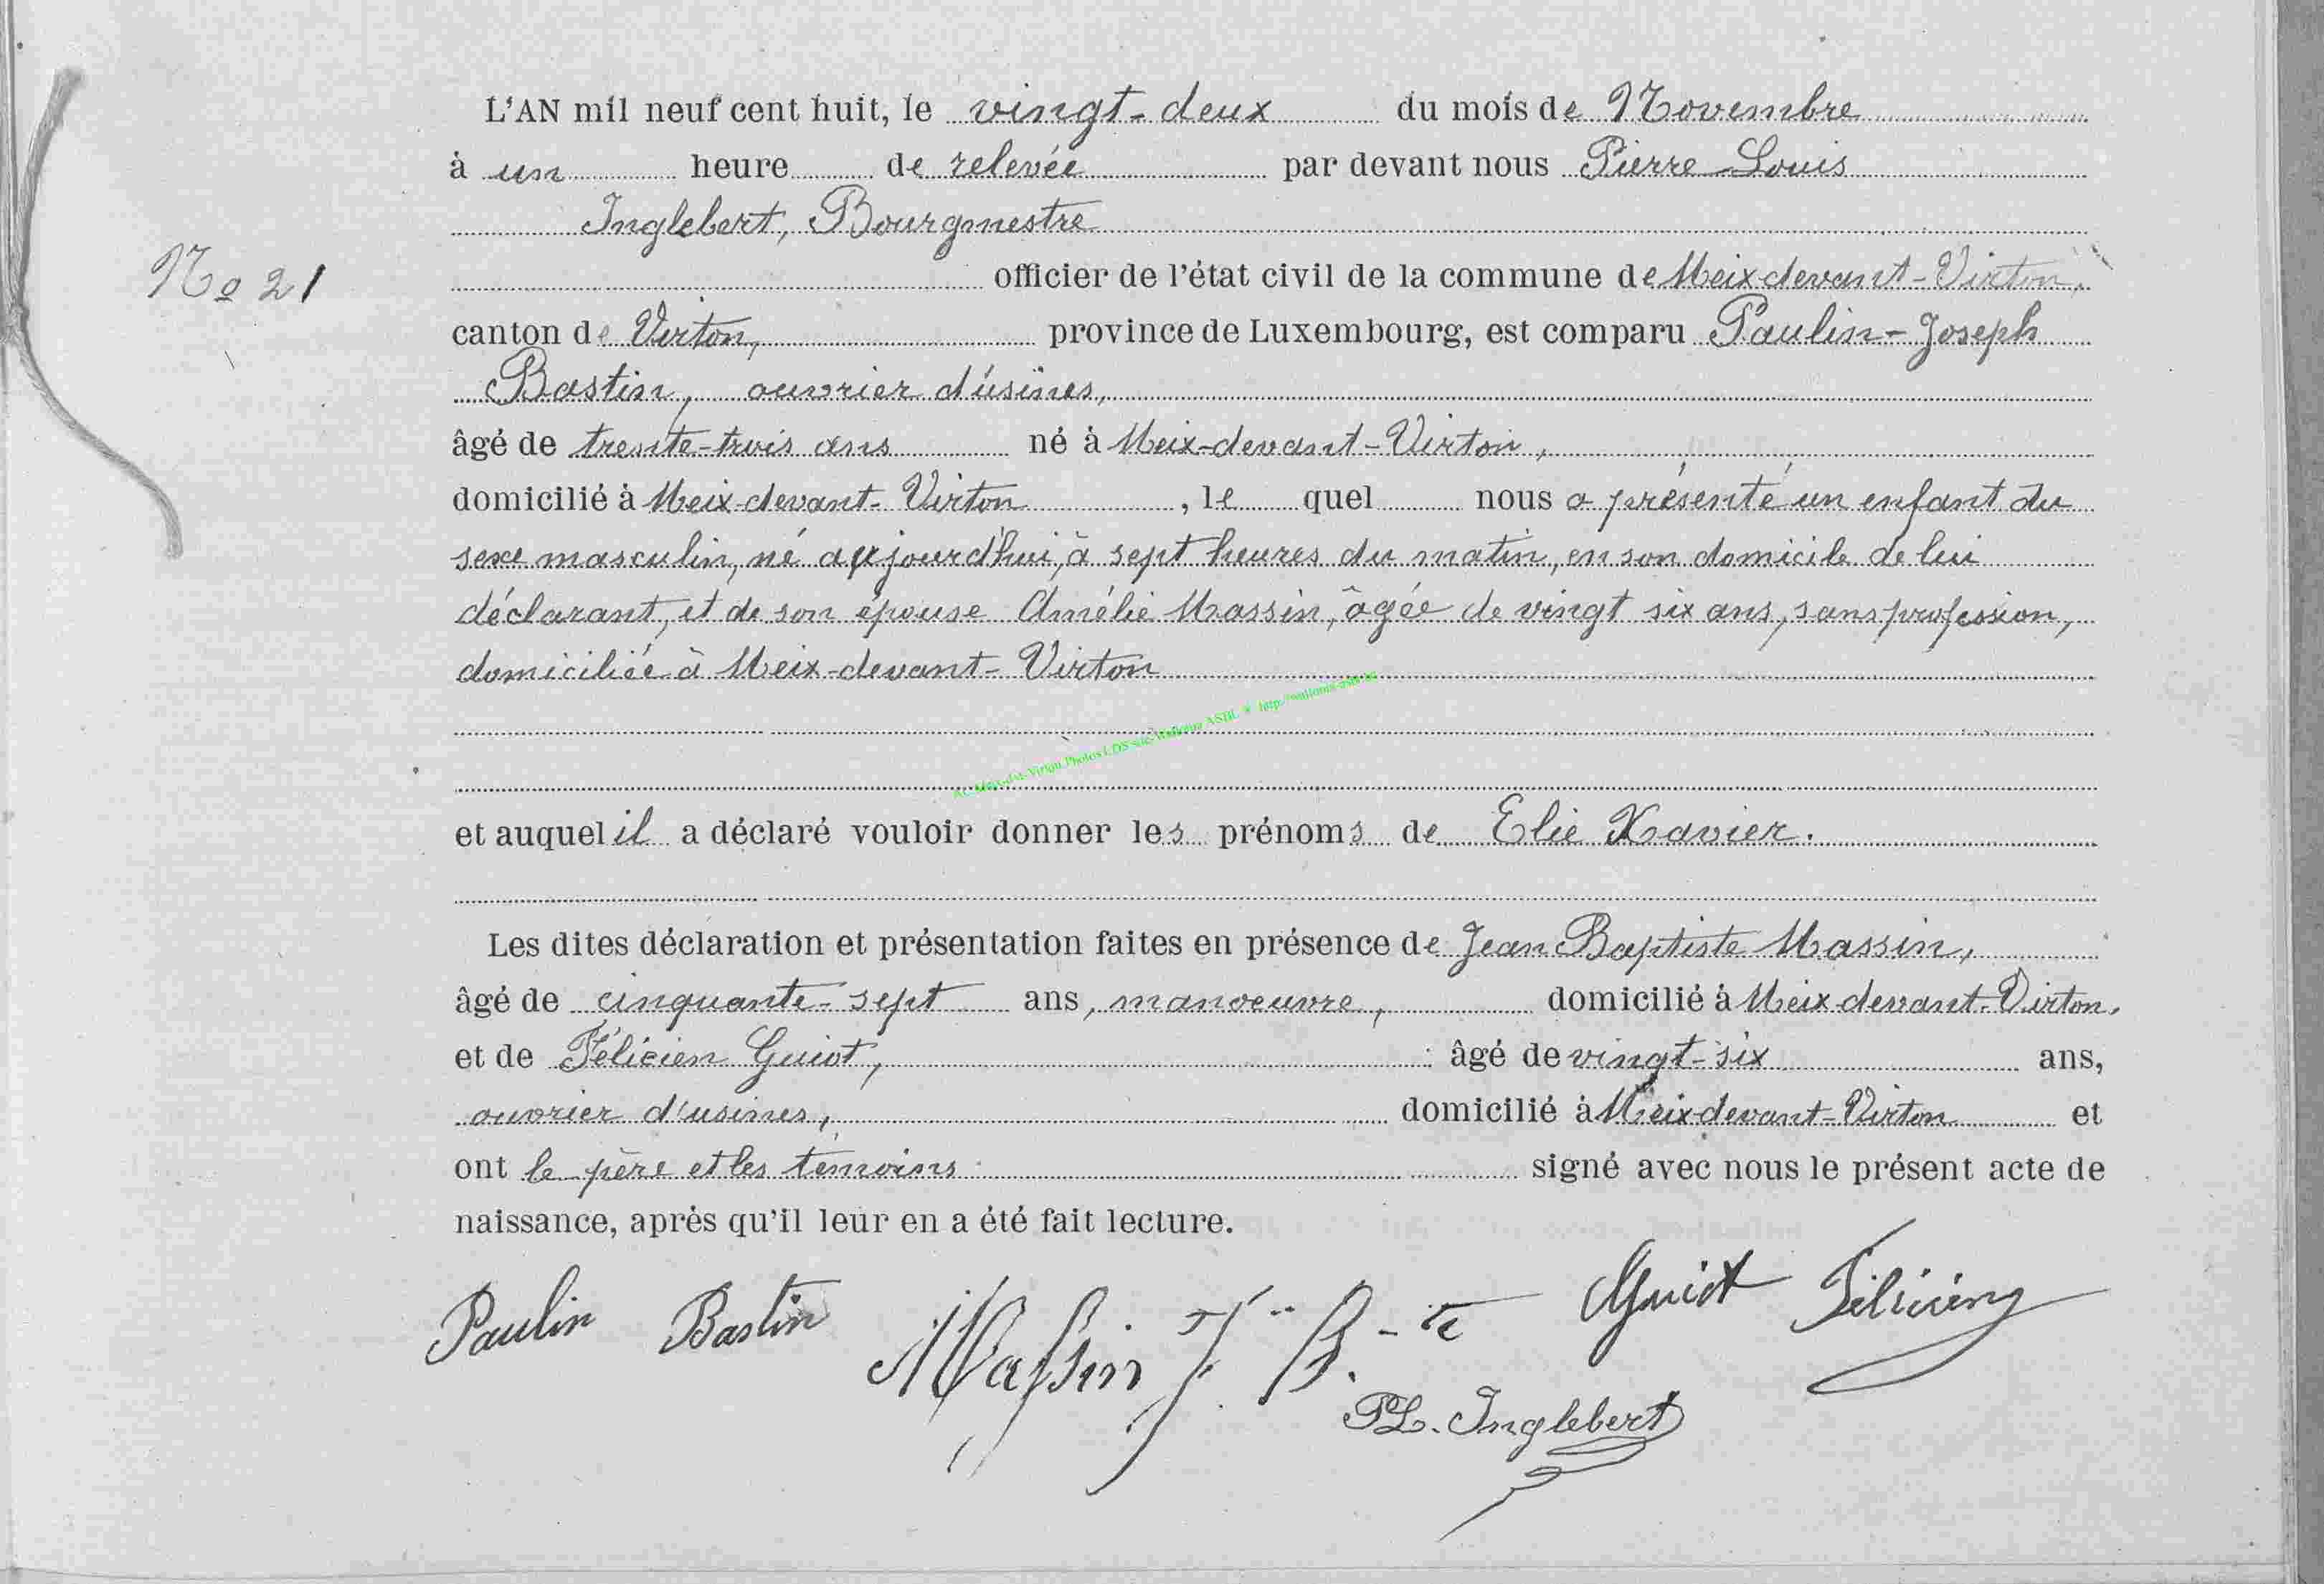 L'AN mil neuf cent huit, le vingt-deux du mois de Novembre
à un heure de relevée par devant nous Pierre-Louis
Inglebert, Bourgmestre
officier de l'état civil de la commune de Meix-devant-Virton,
No 21
canton de Virton, province de Luxembourg, est comparu Paulin-Joseph
Bastin, ouvrier d'usines,
âgé de trente-trois ans né à Meix-devant-Virton,
domicilié à Meix-devant-Virton, le quel nous a présenté un enfant du
sexe masculin, né aujourd'hui, à sept heures du matin, en son domicile de lui
déclarant, et de son épouse Amélie Massin, âgée de vingt six ans, sans profession,
domiciliée à Meix-devant-Virton
Photos LDS sur Wallonia ASBL * http://
et auquel il a déclaré vouloir donner les prénoms de Elie Xavier.
Les dites déclaration et présentation faites en présence de Jean Baptiste Massin,
âgé de cinquante-sept ans, manoeuvre, domicilié à Meix-devant-Virton,
et de Félicien Guiot, âgé de vingt-six ans,
ouvrier d'usines, domicilié à Meix-devant-Virton et
ont le père et les témoins signé avec nous le présent acte de
naissance, après qu'il leur en a été fait lecture.
Paulin Bastin Massin J. B.-te Guiot Félicien
PL. Inglebert